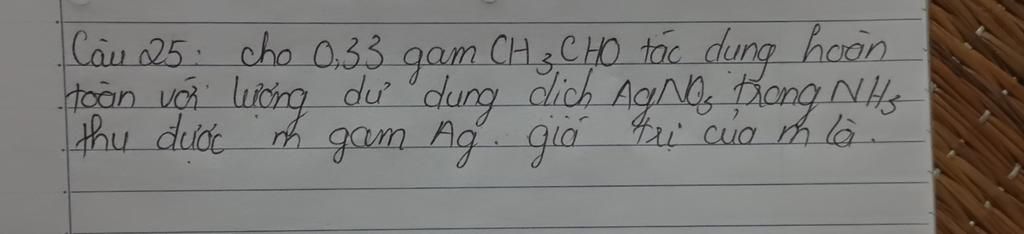 Câu 25: cho 0,33 gam CH3CHO tác dụng hoàn
toàn với lượng dư dung dịch AgNO3 trong NH3
thu được m gam Ag. giá trị của m là.